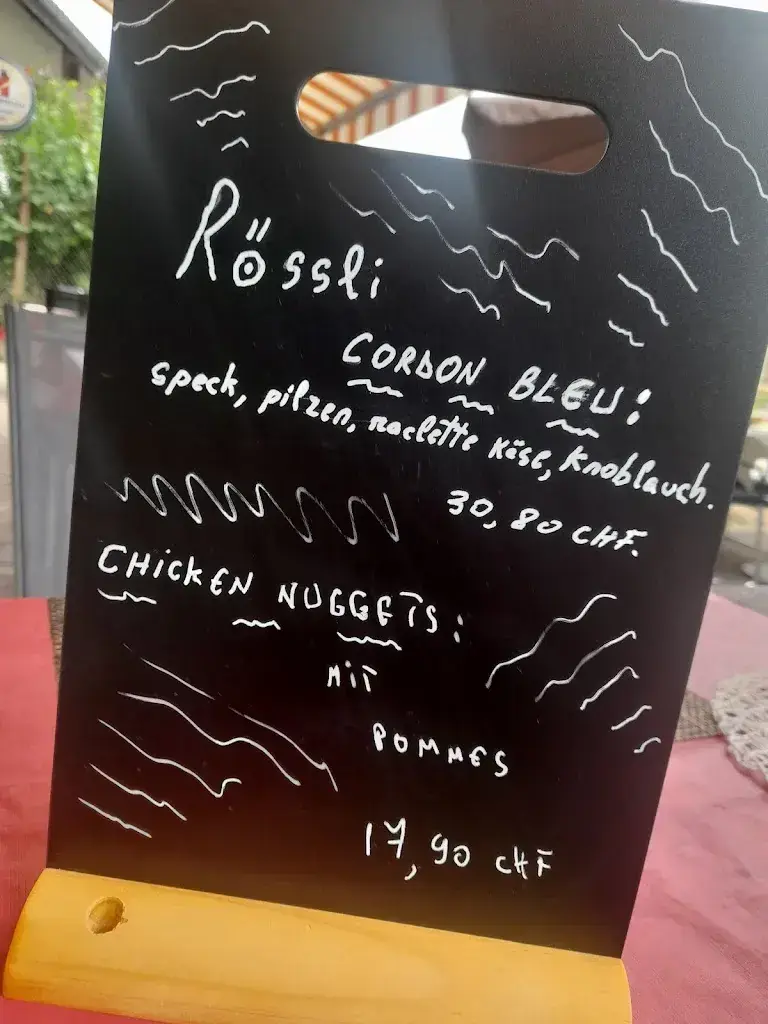 Rössli
CORDON BLEU:
Speck, pilzen, raclette Käse, Knoblauch.
30,80 CHF.
CHiCKEN NUGGETS:
MiT
POMMES
17,90 CHF